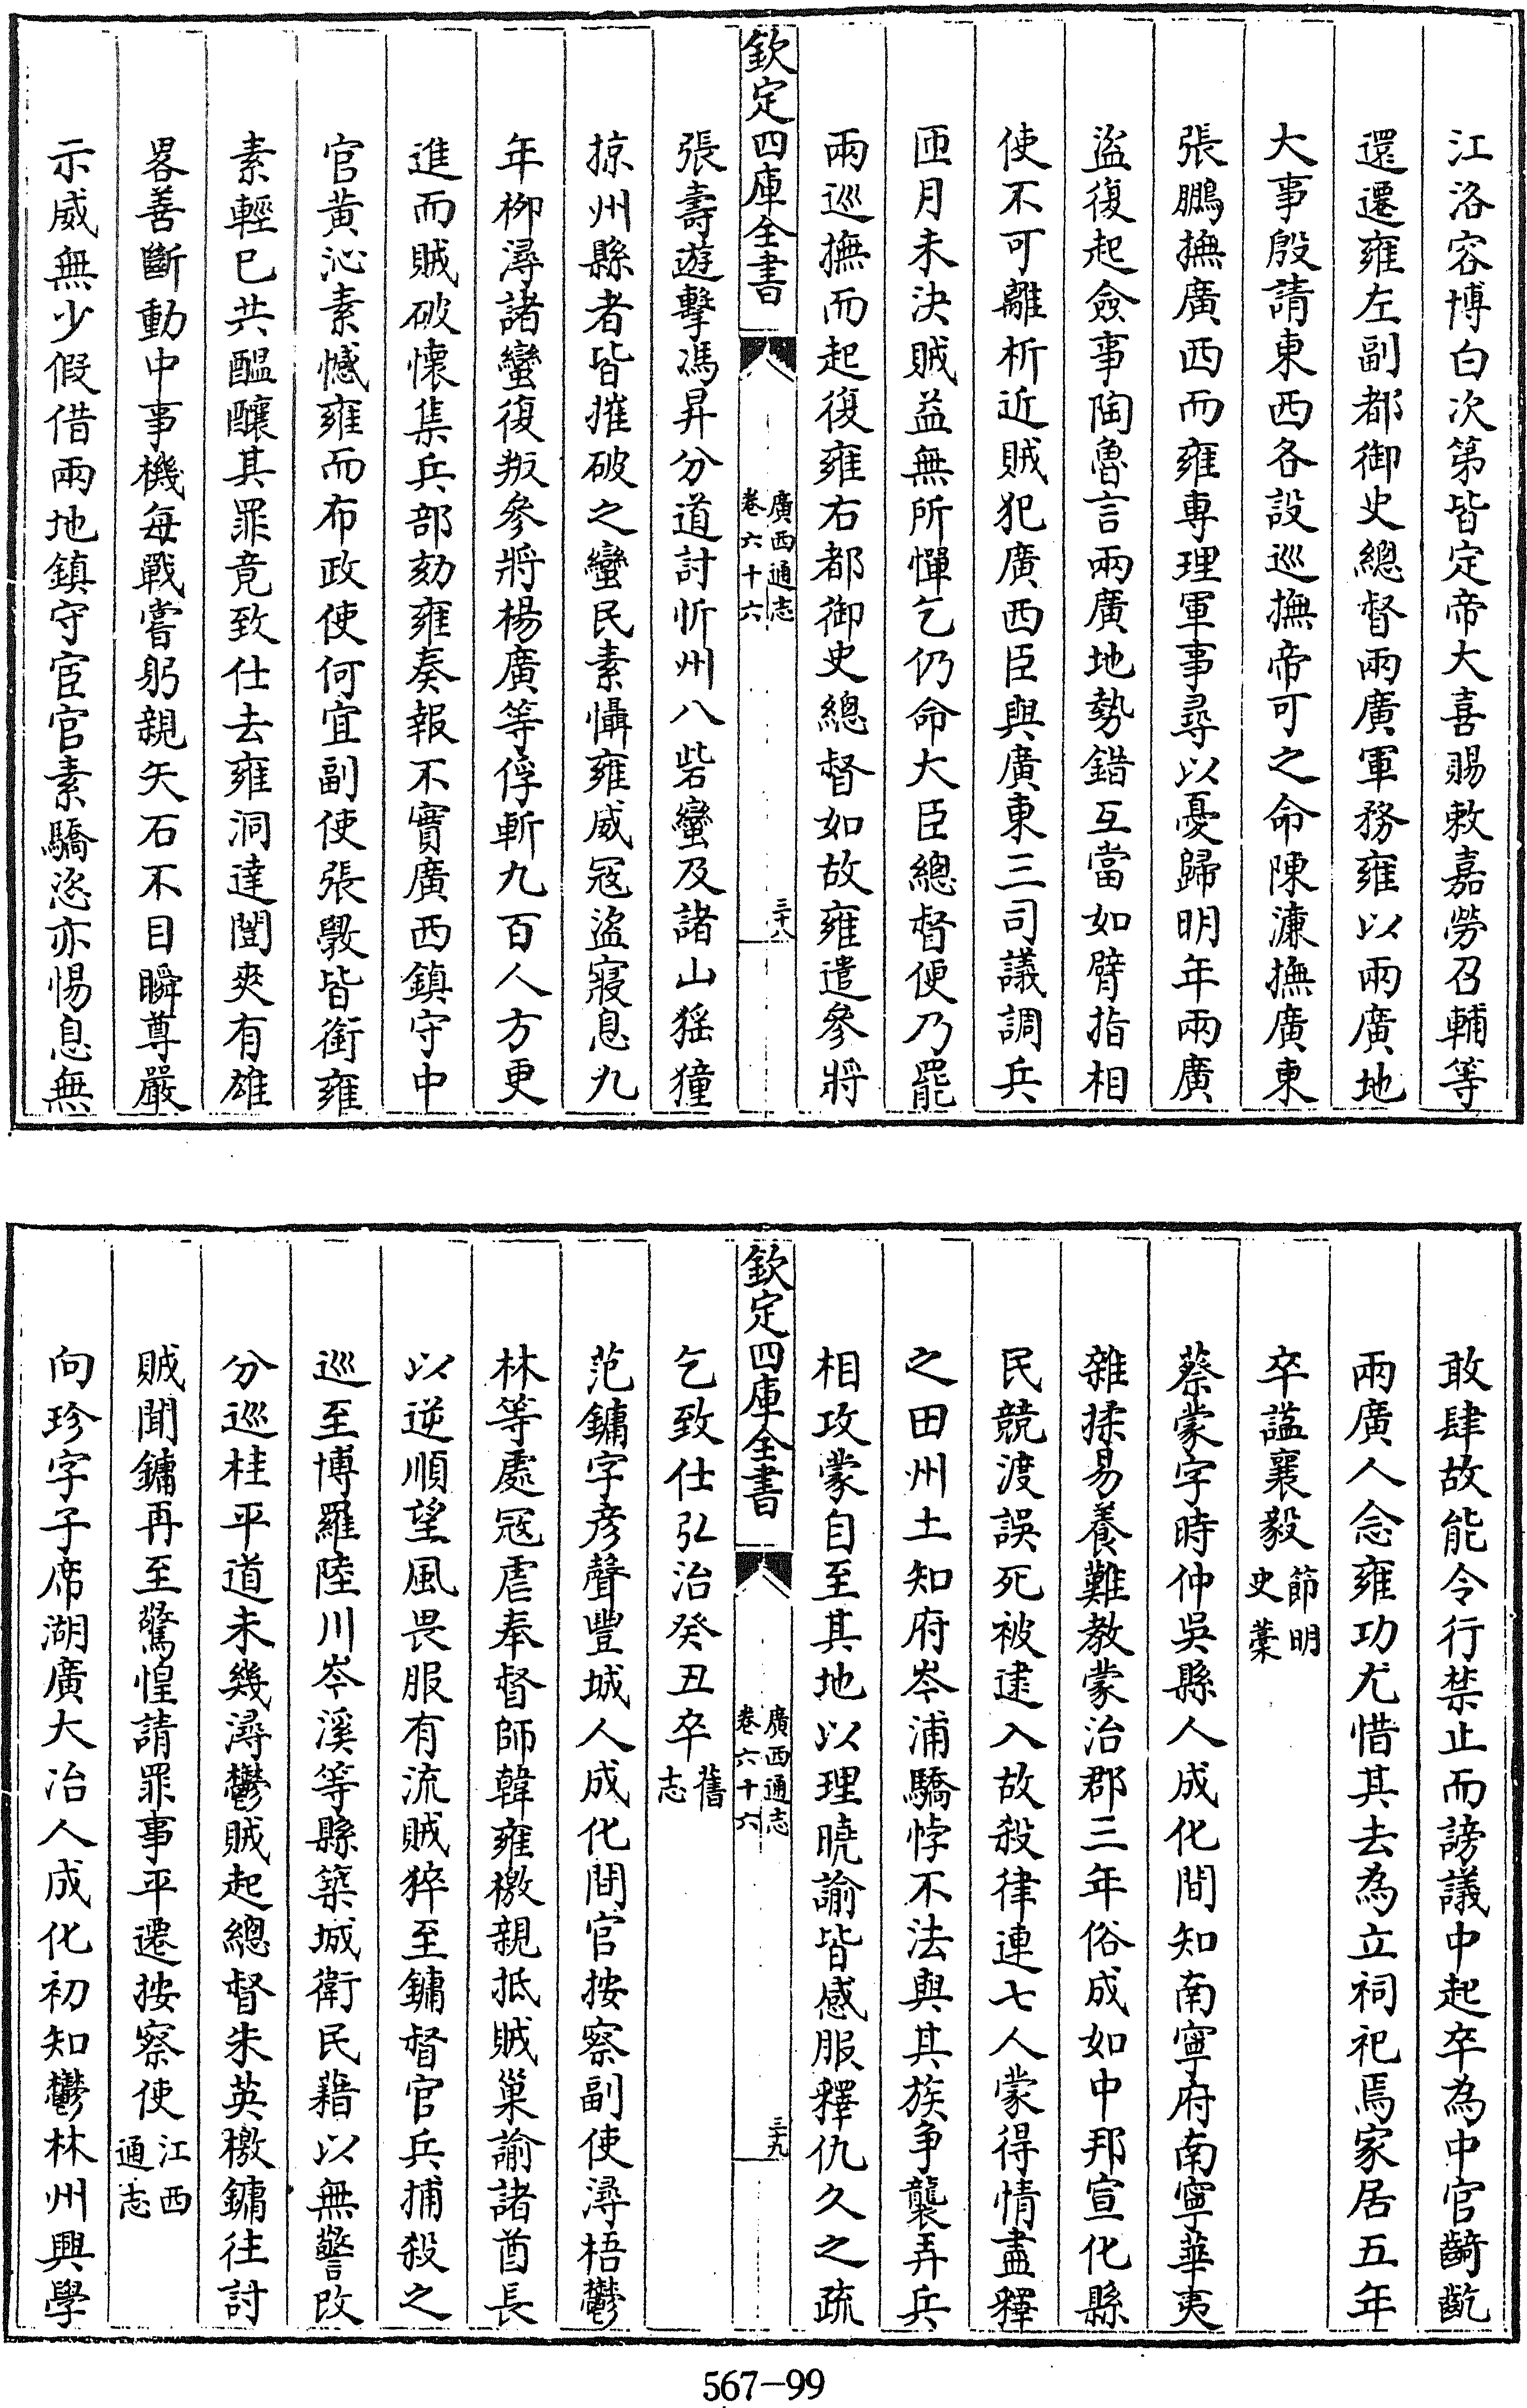 江洛容博白次第皆定帝大喜賜敕嘉勞召輔等
還遷雍左副都御史總督兩廣軍務雍以兩廣地
大事殷請東西各設巡撫帝可之命陳濂撫廣東
張鵬撫廣西而雍專理軍事尋以憂歸明年兩廣
盜復起僉事陶魯言兩廣地勢錯互當如臂指相
使不可離析近賊犯廣西臣與廣東三司議調兵
匝月未決賊益無所憚乞仍命大臣總督便乃罷
兩巡撫而起復雍右都御史總督如故雍遣參將
欽定四庫全書
廣西通志
卷六十六
三十八
張壽遊擊馮昇分道討忻州八砦蠻及諸山猺獞
掠州縣者皆摧破之蠻民素懾雍威冦盜寢息九
年栁潯諸蠻復叛參將楊廣等俘斬九百人方更
進而賊破懷集兵部劾雍奏報不實廣西鎮守中
官黃沁素憾雍而布政使何宜副使張斆皆銜雍
素輕已共醖釀其罪竟致仕去雍洞達闓爽有雄
畧善斷動中事機每戰嘗躬親矢石不目瞬尊嚴
示威無少假借兩地鎮守宦官素驕恣亦惕息無
敢肆故能令行禁止而謗議中起卒為中官齮齕
兩廣人念雍功尤惜其去為立祠祀焉家居五年
卒諡襄毅
節明
史藁
蔡蒙字時仲吳縣人成化間知南寧府南寧華夷
雜揉易養難教蒙治郡三年俗成如中邦宣化縣
民競渡誤死被逮入故殺律連七人蒙得情盡釋
之田州土知府岑浦驕悖不法與其族争襲弄兵
相攻蒙自至其地以理曉諭皆感服釋仇久之疏
欽定四庫全書
廣西通志
卷六十六
三十九
乞致仕弘治癸丑卒
舊
志
范鏞字彥聲豐城人成化間官按察副使潯梧鬱
林等處冦虐奉督師韓雍檄親抵賊巢諭諸酋長
以逆順望風畏服有流賊猝至鏞督官兵捕殺之
巡至博羅陸川岑溪等縣築城衛民藉以無警改
分巡桂平道未幾潯鬱賊起總督朱英檄鏞往討
賊聞鏞再至驚惶請罪事平遷按察使
江西
通志
向珍字子席湖廣大冶人成化初知鬱林州興學
567-99